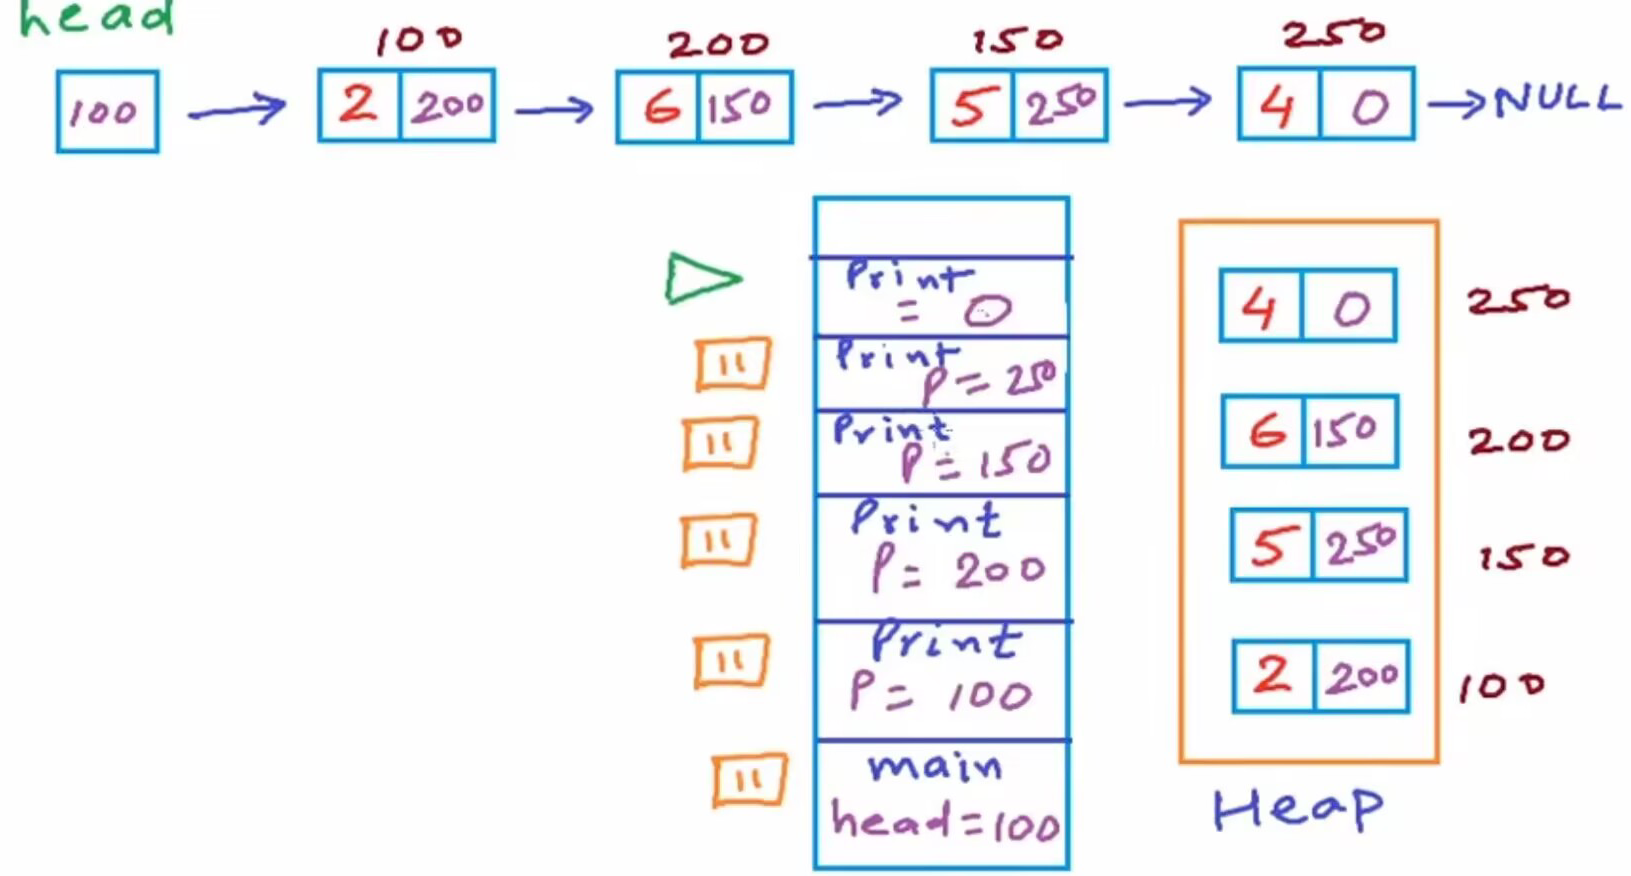 head
100 200 150 250
100 2 200 6 150 5 250 4 0 NULL
Print
= 0
Print
P = 250
Print
P = 150
Print
P = 200
Print
P = 100
main
head = 100
4 0 250
6 150 200
5 250 150
2 200 100
Heap